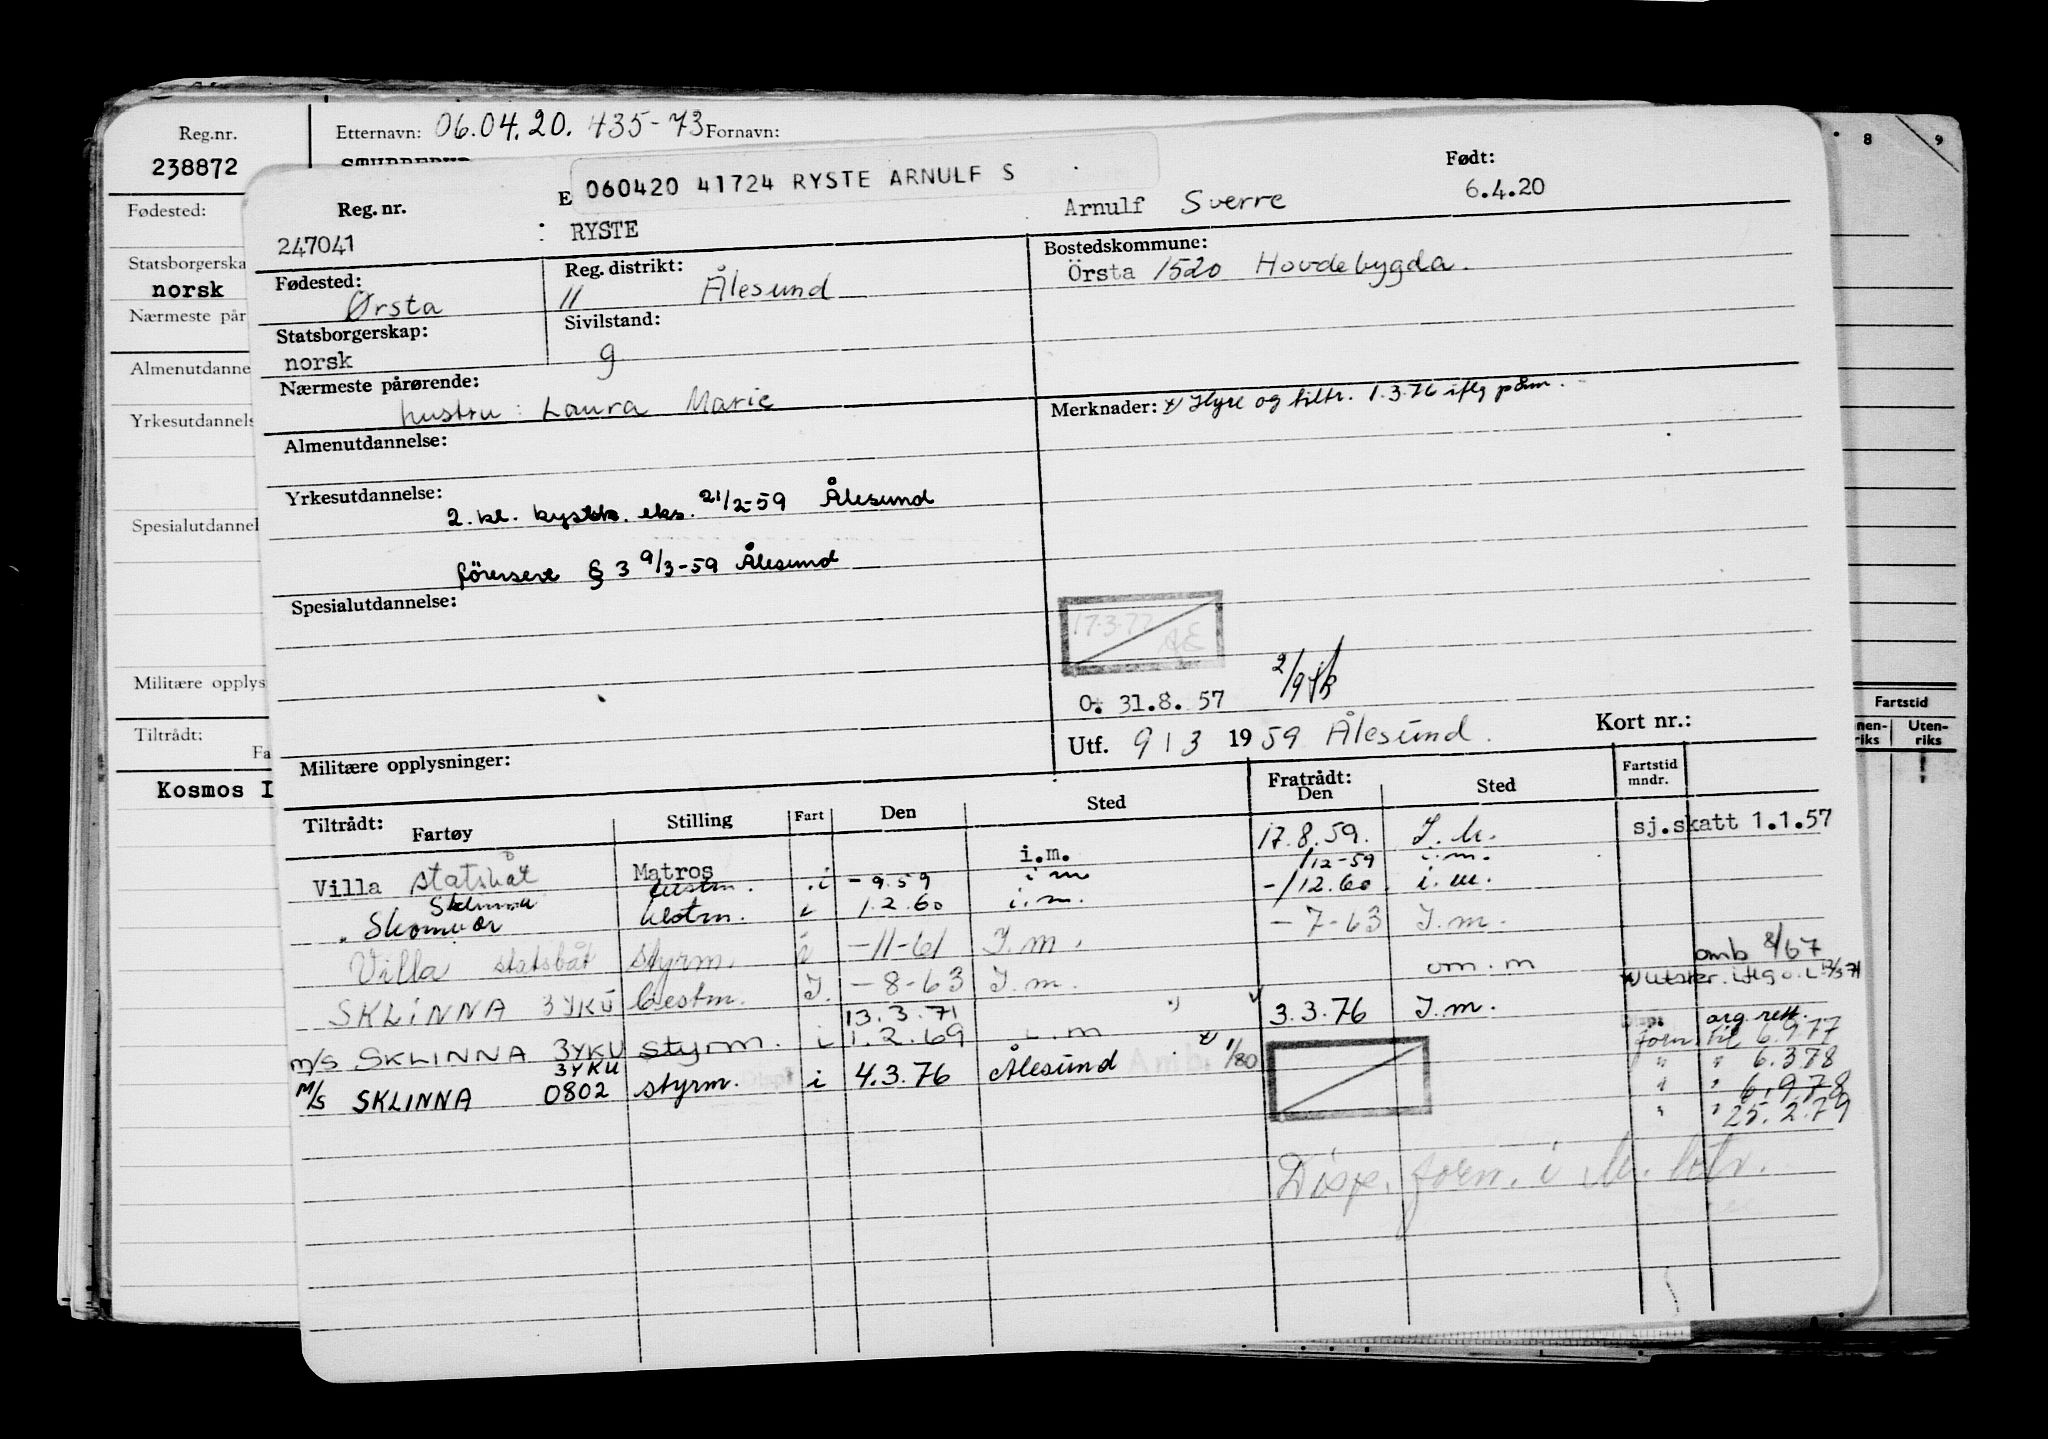 Reg.nr.
238872
Etternavn: 06.04.20. 435-73 Fornavn:
8 9
060420 41724 RYSTE ARNULF S
Født:
6.4.20
Reg. nr.
247041
E
: RYSTE
Arnulf Sverre
Fødested:
Statsborgerska
norsk
Nærmeste pår
Almenutdanne
Yrkesutdannels
Spesialutdannel
Militære opplys
Tiltrådt:
Fa
Kosmos I
Fødested:
Ørsta
Reg. distrikt:
11 Ålesund
Bostedskommune:
Örsta 1520 Hovdebygda.
Statsborgerskap:
norsk
Sivilstand:
g
Nærmeste pårørende:
hustru: Laura Marie
Merknader: x/ Hyre og tiltr. 1.3.76 iflg påm.
Almenutdannelse:
Yrkesutdannelse:
2. kl. kystsk. eks. 21/2-59 Ålesund
förersert § 3 9/3-59 Ålesund
Spesialutdannelse:
17.3.77
O. 31.8. 57 2/9
Utf. 9 / 3 1959 Ålesund.
Kort nr.:
Militære opplysninger:
Tiltrådt:
Fartøy
Stilling
Fart
Den
Sted
Fratrådt:
Den
Sted
Fartstid
mndr.
Fartstid
nen-
riks
Uten-
riks
Villa statsbåt Matros i.m. 17.8.59. I.M. sj.skatt 1.1.57
Sklinna i -9.59 i m /12-59 i.m.
Skomvær i 1.2.60 i.m. -/12.60 i.m.
Villa statsbåt styrm. i -11-61 I.m. -7-63 I.m.
SKLINNA 3YKU Bestm. I. -8-63 I.m. om.m amb 8/67
13.3.71
m/s SKLINNA 3YKU styrm. i 1.2.69 i.m 3.3.76 I.m.
org. rett.
M/S SKLINNA 3YKU 0802 styrm. i 4.3.76 Ålesund 1/80
forn til 6.9 77
" " 6.3 78
" " 6.9 78
" " 25.2.79
Disp. forn. i M.